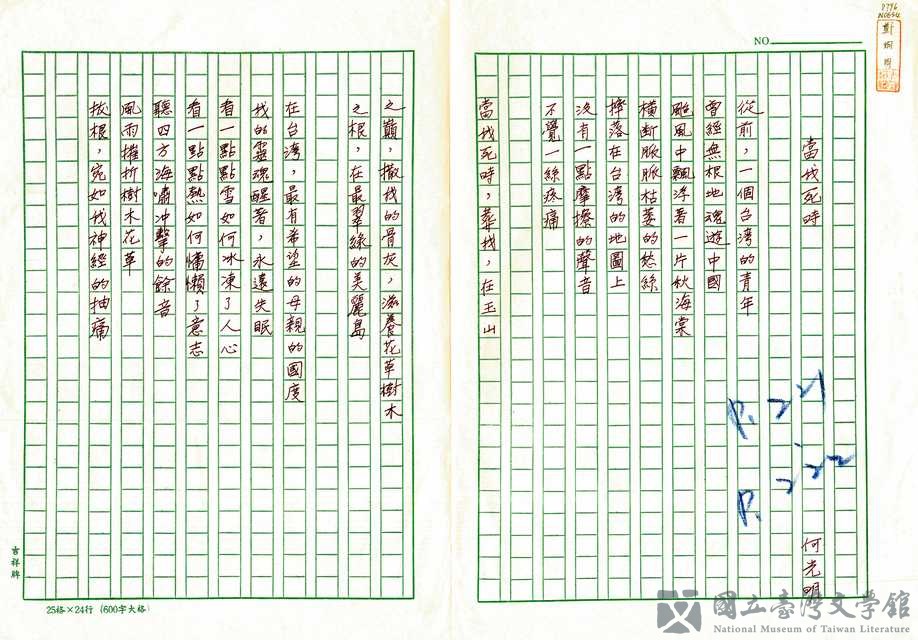 P396
N0654
鄭烱明
NO.
當我死時
何光明
從前，一個台湾的青年
曾經無根地魂遊中國
颱風中飄浮着一片秋海棠
橫斷脈脈枯萎的愁絲
擠落在台湾的地圖上
沒有一點摩擦的聲音
不覺一絲疼痛
當我死時，葬我，在玉山
之巔，撒我的骨灰，滋養花草樹木
之根，在最翠綠的美麗島
在台湾，最有希望的母親的國度
我的靈魂醒著，永遠失眠
看一點點雪如何冰凍了人心
看一點點熱如何慵懶了意志
聽四方海嘯冲擊的餘音
風雨摧折樹木花草
拔根，宛如我神經的抽痛
P.221
P.222
吉祥牌
25格×24行 (600字大格)
國立臺灣文學館
National Museum of Taiwan Literature